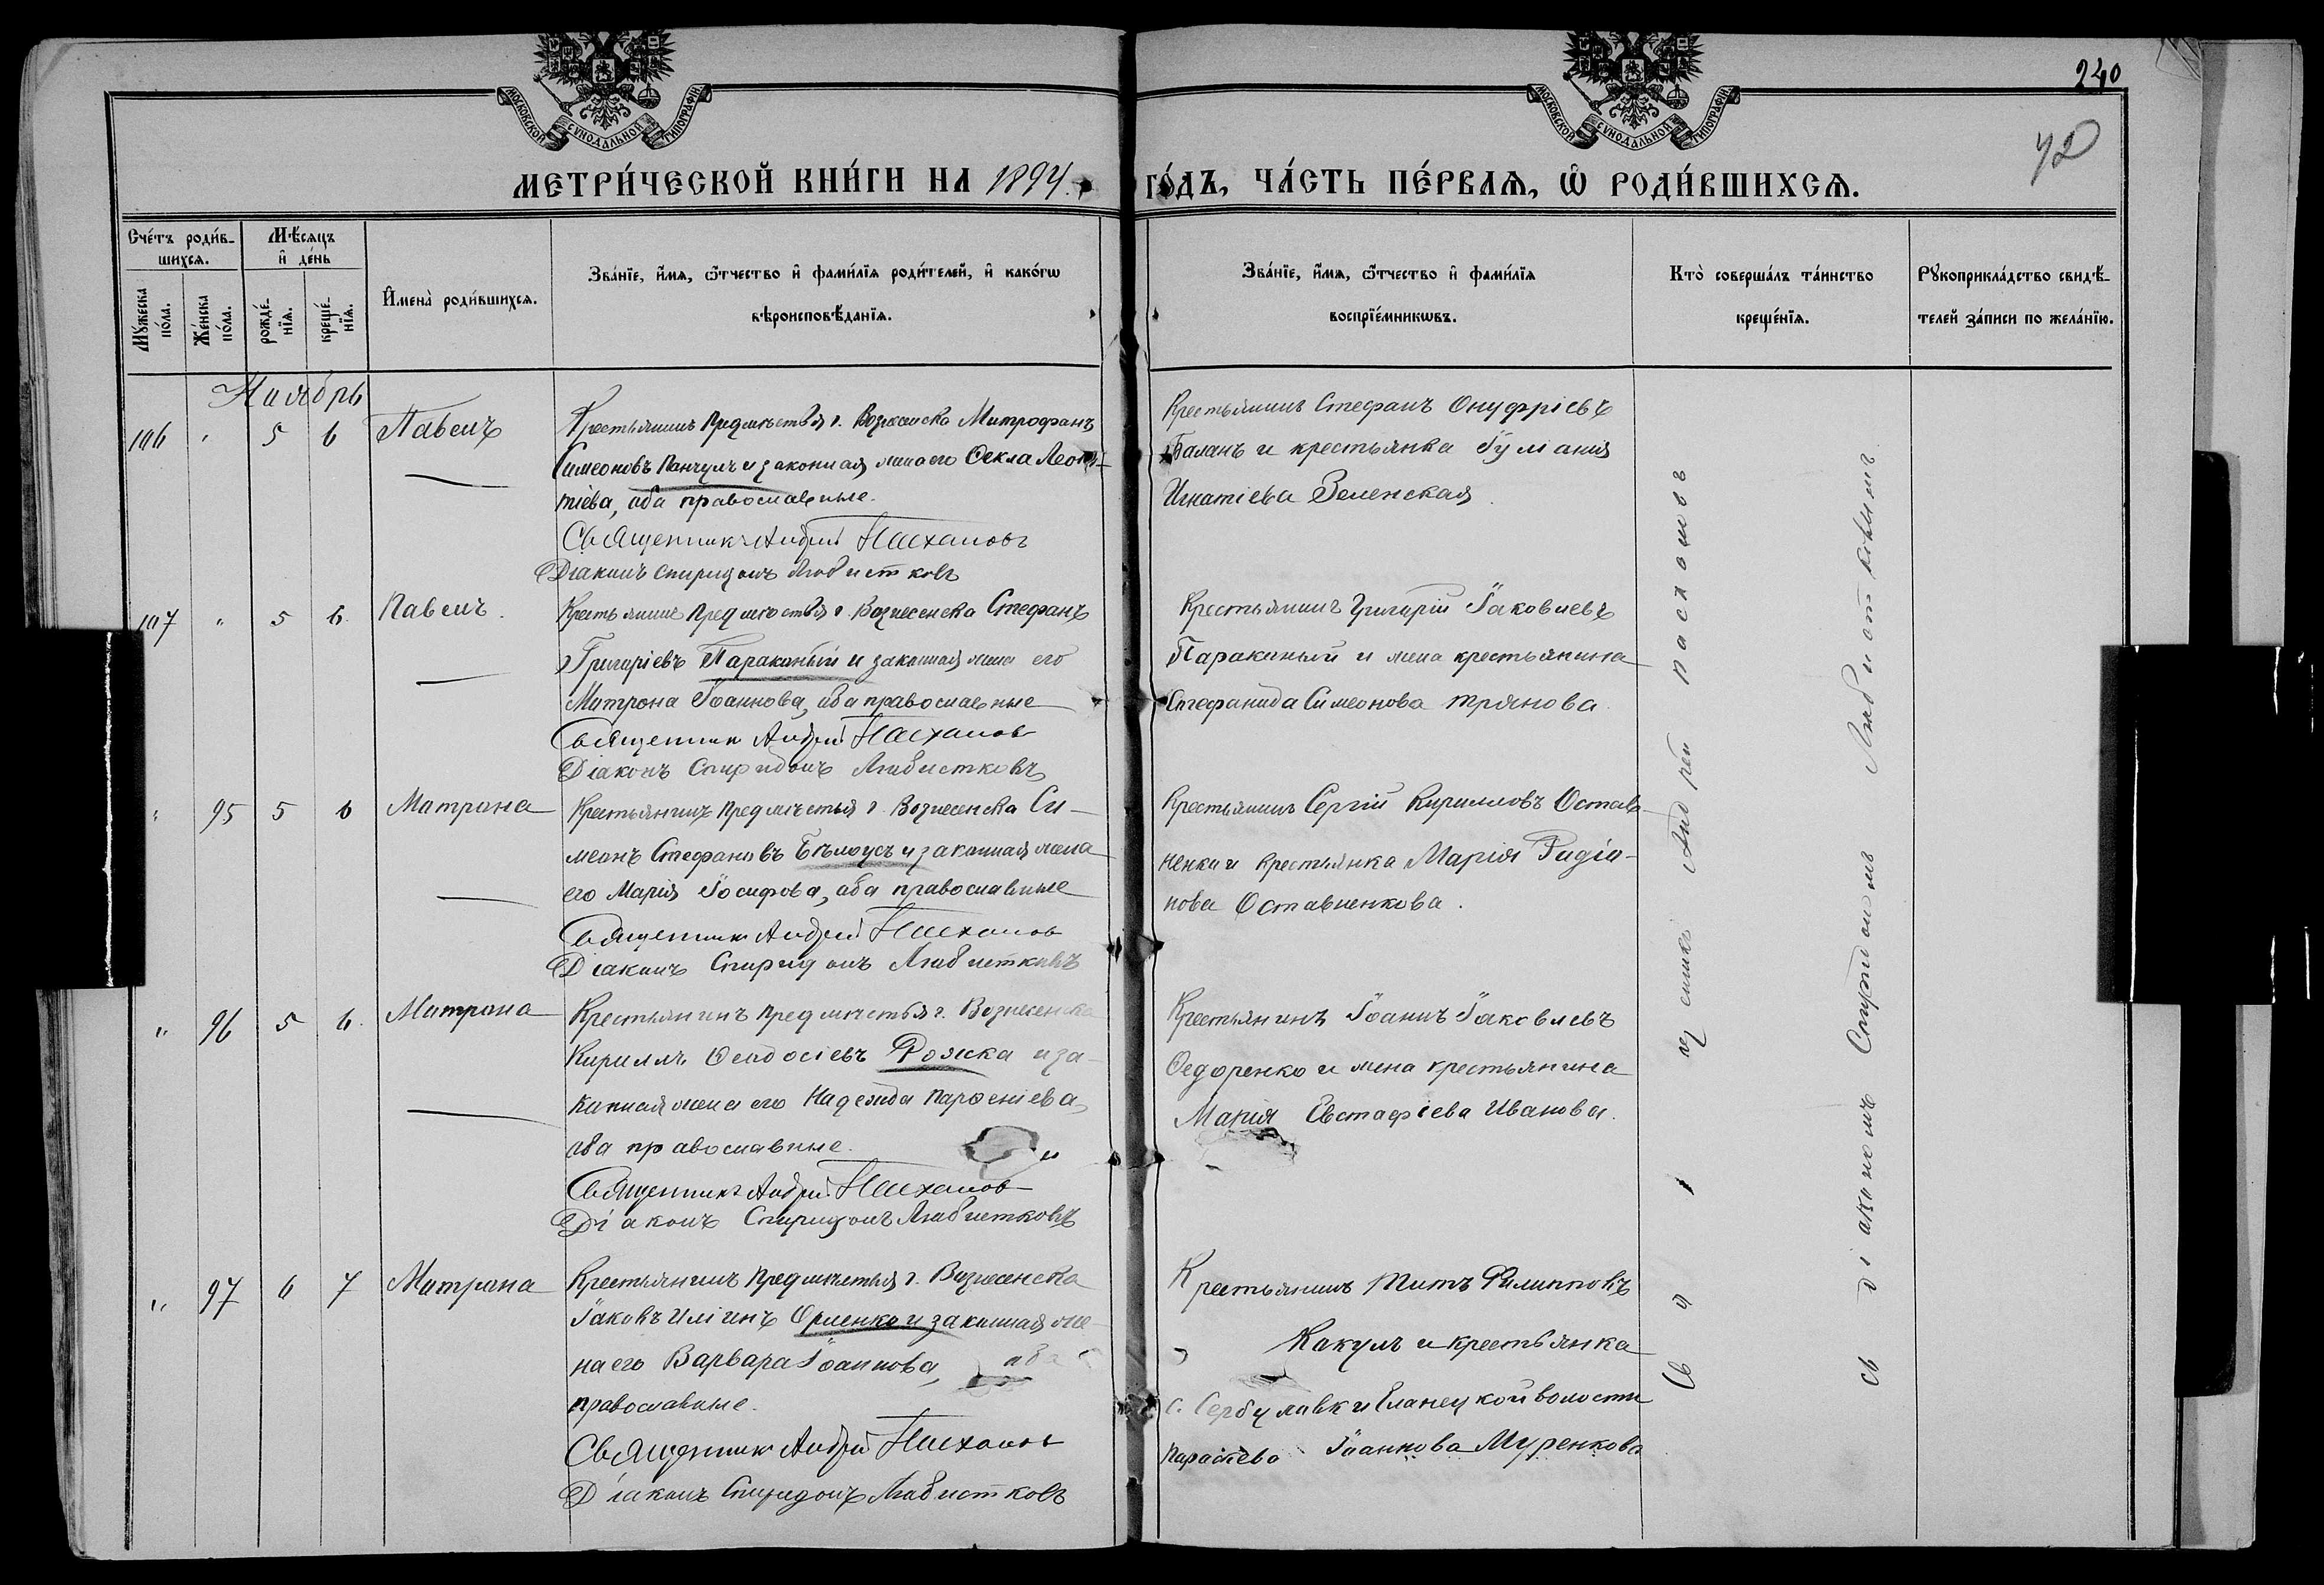 240
42
МОСКОВСКОЙ СѴНОДАЛЬНОЙ ТИПОГРАФІИ
МОСКОВСКОЙ СѴНОДАЛЬНОЙ ТИПОГРАФІИ
МЕТРИ́ЧЕСКОЙ КНИ́ГИ НА 1894 ГО́ДЪ, ЧА́СТЬ ПЕ́РВАѦ, Ѽ РОДИ́ВШИХСѦ.
Сче́тъ роди́в-
шихсѧ.
Мꙋ́жеска
по́ла.
Же́нска
по́ла.
Мѣ́сѧцъ
и҆ де́нь
рожде́-
нїѧ.
креще́-
нїѧ.
И҆мена̀ роди́вшихсѧ.
Зва́нїе, и҆́мѧ, ѻ҆́тчество и҆ фами́лїѧ роди́телей, и҆ како́гѡ
вѣроисповѣ́данїѧ.
Зва́нїе, и҆́мѧ, ѻ҆́тчество и҆ фами́лїѧ
воспрїе́мникѡвъ.
Кто̀ соверша́лъ та́инство
креще́нїѧ.
Рꙋкоприкла́дство свидѣ́-
телей за́писи по жела́нїю.
Ноябрь
106 " 5 6 Павелъ
Крестьянинъ предмѣстья г. Вознесенска Митрофанъ
Симеоновъ Панчулъ и законная жена его Ѳекла Леон-
тіева, оба православные.
Священникъ Андрей
Діаконъ Спиридонъ Любистковъ
Крестьянинъ Стефанъ Онуфріевъ
Баланъ и крестьянка Іуліанія
Игнатіева Зеленская.
107 " 5 6. Павелъ.
Крестьянинъ предмѣстья г. Вознесенска Стефанъ
Григоріевъ Параконый и законная жена его
Матрона Іоаннова, оба православные
Священник Андрей
Діаконъ Спиридонъ Любистковъ
Крестьянинъ Григорій Іаковлевъ
Параконый и жена крестьянина
Стефанида Симеонова Трянова
" 95 5 6 Матрона
Крестьянинъ предмѣстья г. Вознесенска Си-
меонъ Стефановъ Бѣлоусъ и законная жена
его Марія Іосифова, оба православные
Священник Андрей
Діаконъ Спиридонъ Любистковъ
Крестьянинъ Сергій Кирилловъ Остав-
ненко и крестьянка Марія Родіо-
нова Оставненкова.
" 96 5 6. Матрона
Крестьянинъ предмѣстья г. Вознесенска
Кириллъ Ѳеодосіевъ Рожка и за-
конная жена его Надежда Парѳеніева,
оба православные.
Священникъ Андрей
Діаконъ Спиридонъ Любистковъ
Крестьянинъ Іоаннъ Іаковлевъ
Ѳедоренко и жена крестьянина
Марія Евстафіева Иванова.
" 97 6 7 Матрона
Крестьянинъ предмѣстья г. Вознесенска
Іаковъ Иліинъ Орленко и законная же-
на его Варвара Іоаннова, оба
православные.
Священник Андрей
Діаконъ Спиридонъ Любистковъ
Крестьянинъ Титъ Филипповъ
Кокулъ и крестьянка
с. Сербуловки Еланецкой волости
Параскева Іоаннова Муренкова
Андрей
съ діакономъ Спиридономъ Любистковымъ